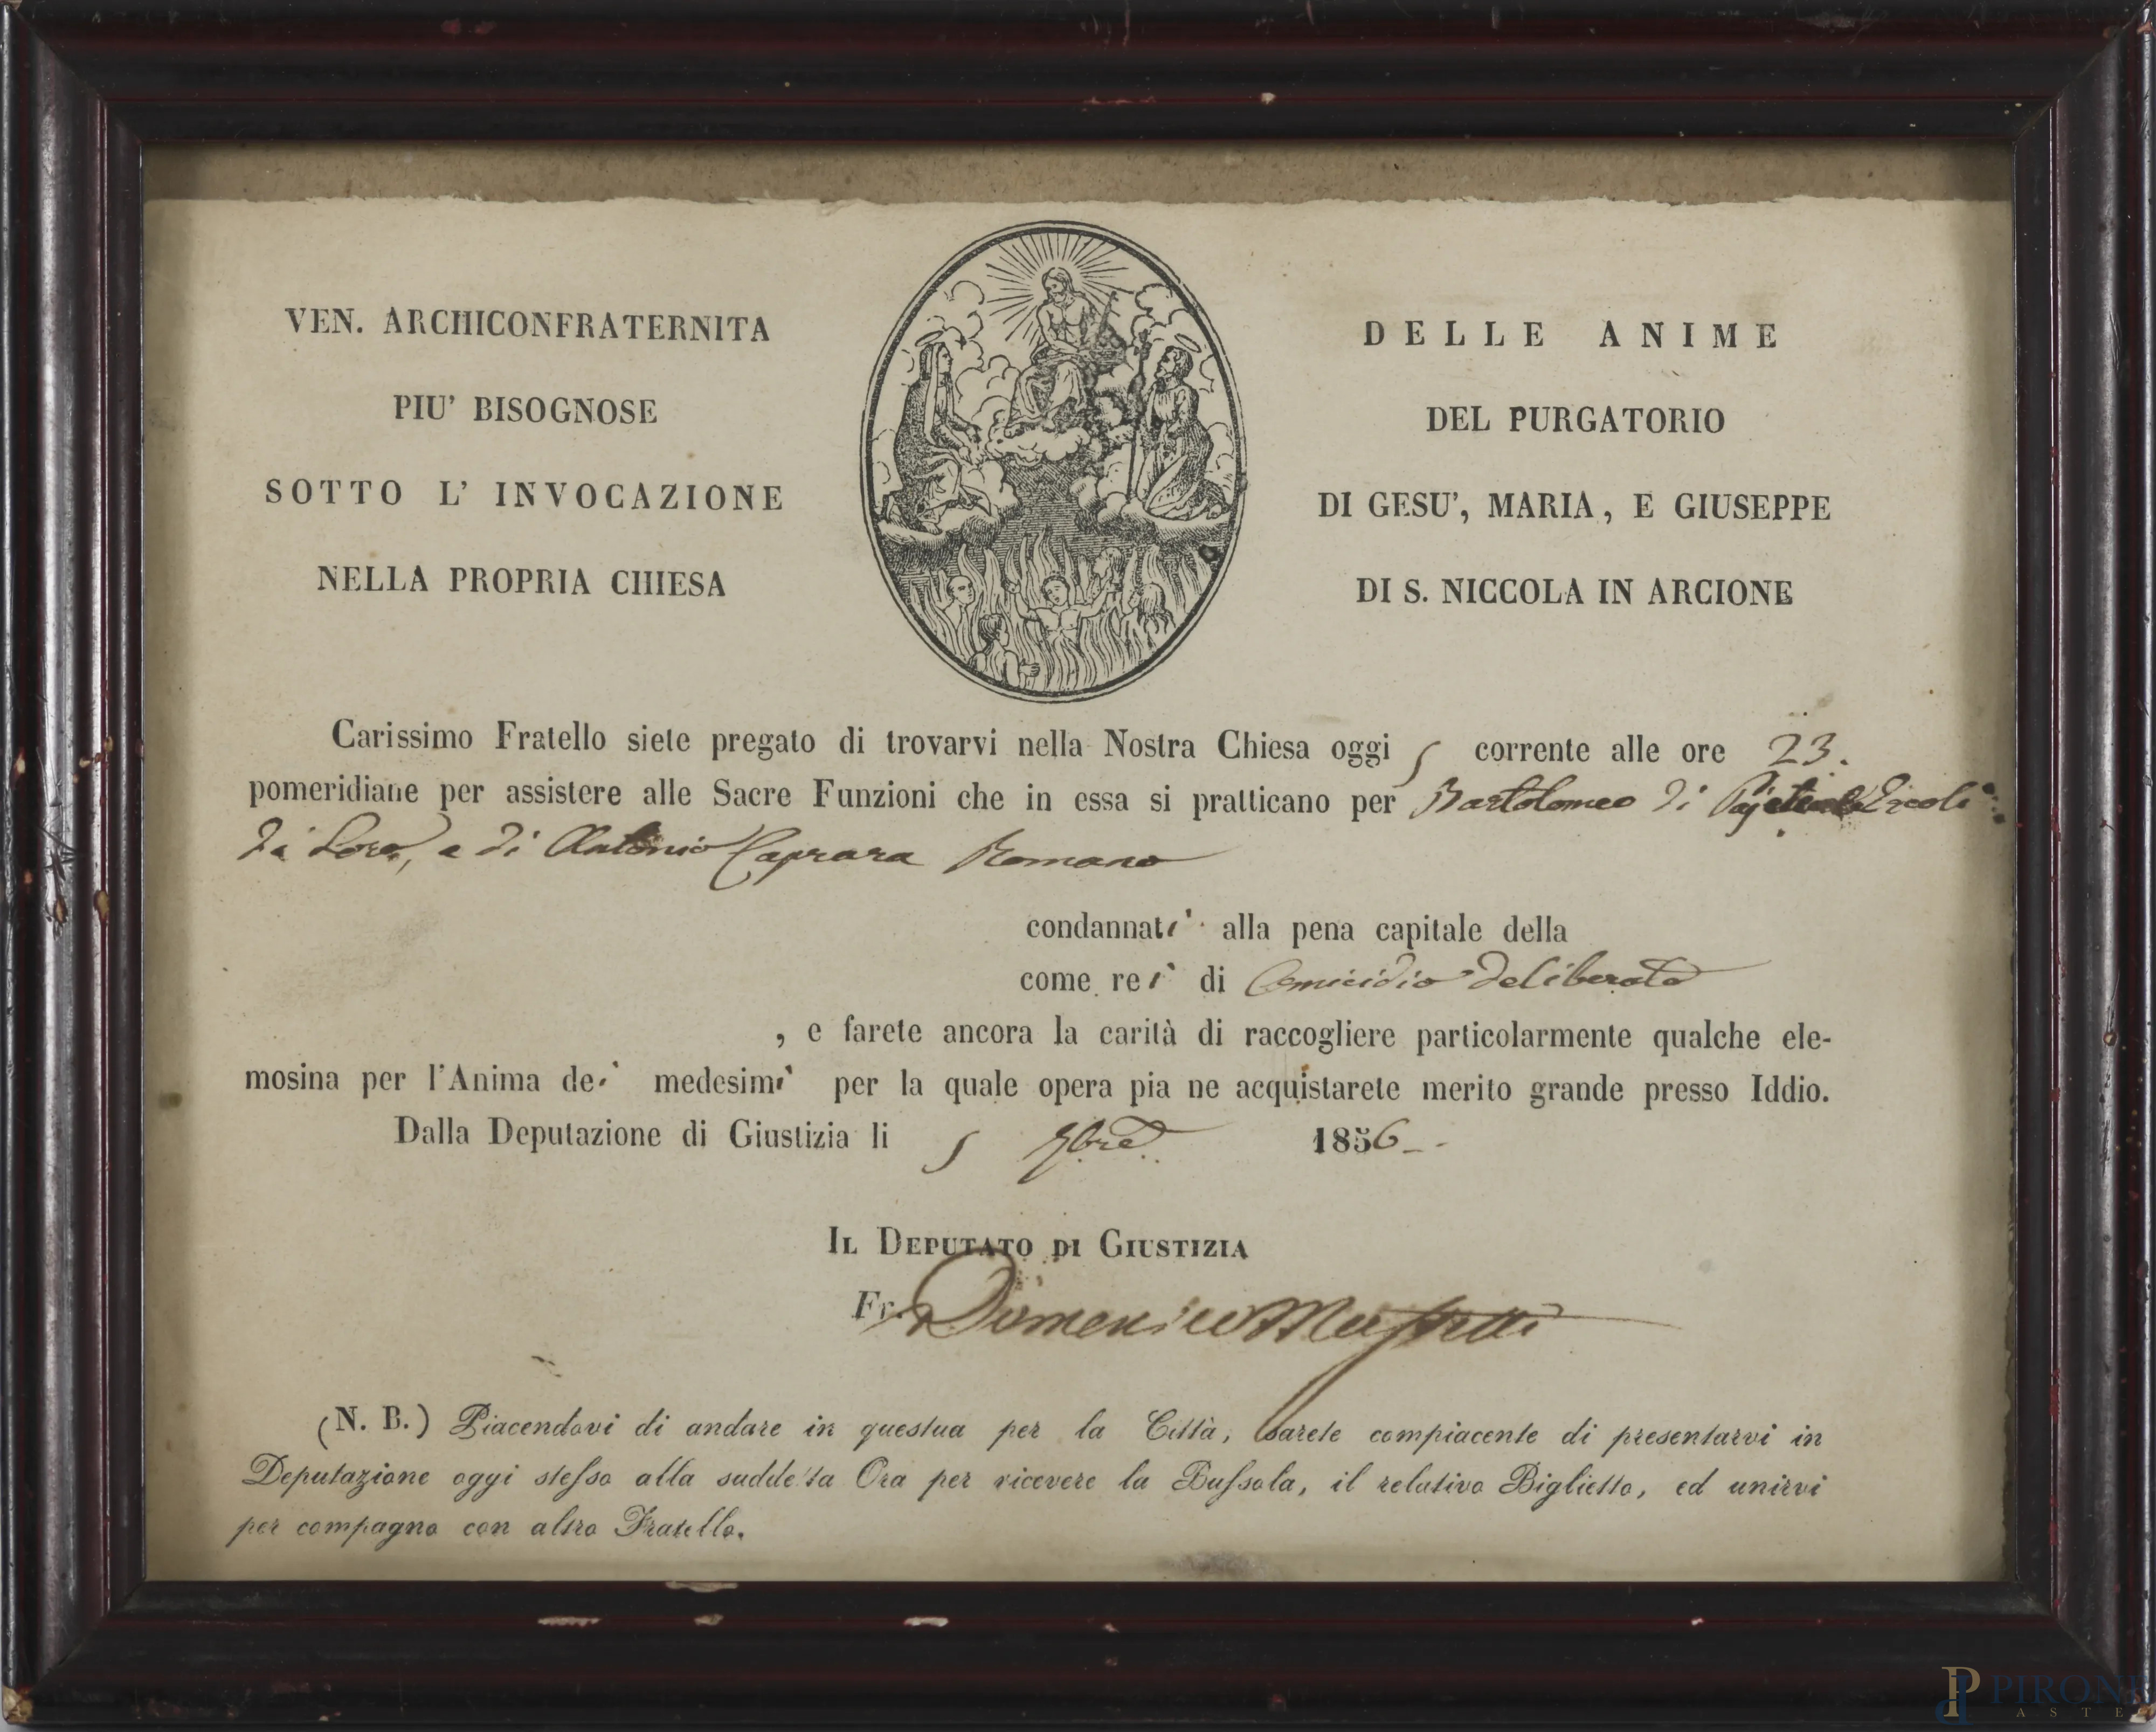 VEN. ARCHICONFRATERNITA DELLE ANIME
PIU' BISOGNOSE DEL PURGATORIO
SOTTO L' INVOCAZIONE DI GESU', MARIA, E GIUSEPPE
NELLA PROPRIA CHIESA DI S. NICCOLA IN ARCIONE
Carissimo Fratello siete pregato di trovarvi nella Nostra Chiesa oggi 5 corrente alle ore 23.
pomeridiane per assistere alle Sacre Funzioni che in essa si pratticano per Bartolomeo di Ercoli
da Loro, e di Antonio Caprara Romano
condannati alla pena capitale della
come rei di Omicidio deliberato
, e farete ancora la carità di raccogliere particolarmente qualche ele-
mosina per l'Anima dei medesimi per la quale opera pia ne acquistarete merito grande presso Iddio.
Dalla Deputazione di Giustizia li 5 1856
IL DEPUTATO DI GIUSTIZIA
Fr. Domenico
(N. B.) Piacendovi di andare in questua per la Città, sarete compiacente di presentarvi in
Deputazione oggi stesso alla suddetta Ora per ricevere la Bussola, il relativo Biglietto, ed unirvi
per compagno con altro Fratello.
PIRONE
ASTE